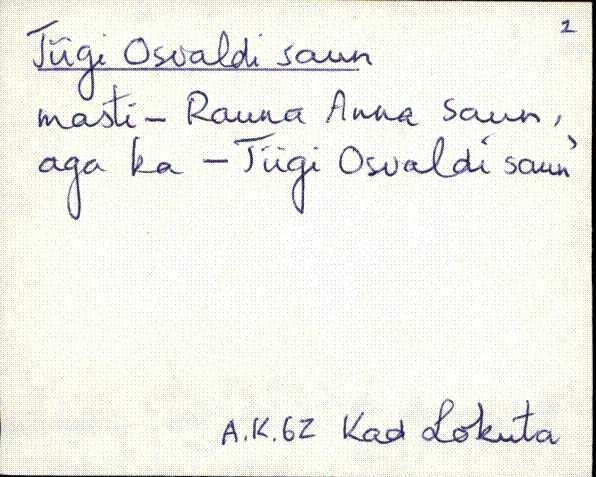 2
Tiigi Osvaldi saun
masti – Rauna Anna saun,
aga ka – Tiigi Osvaldi saun
A.K.62 Kad Lokuta